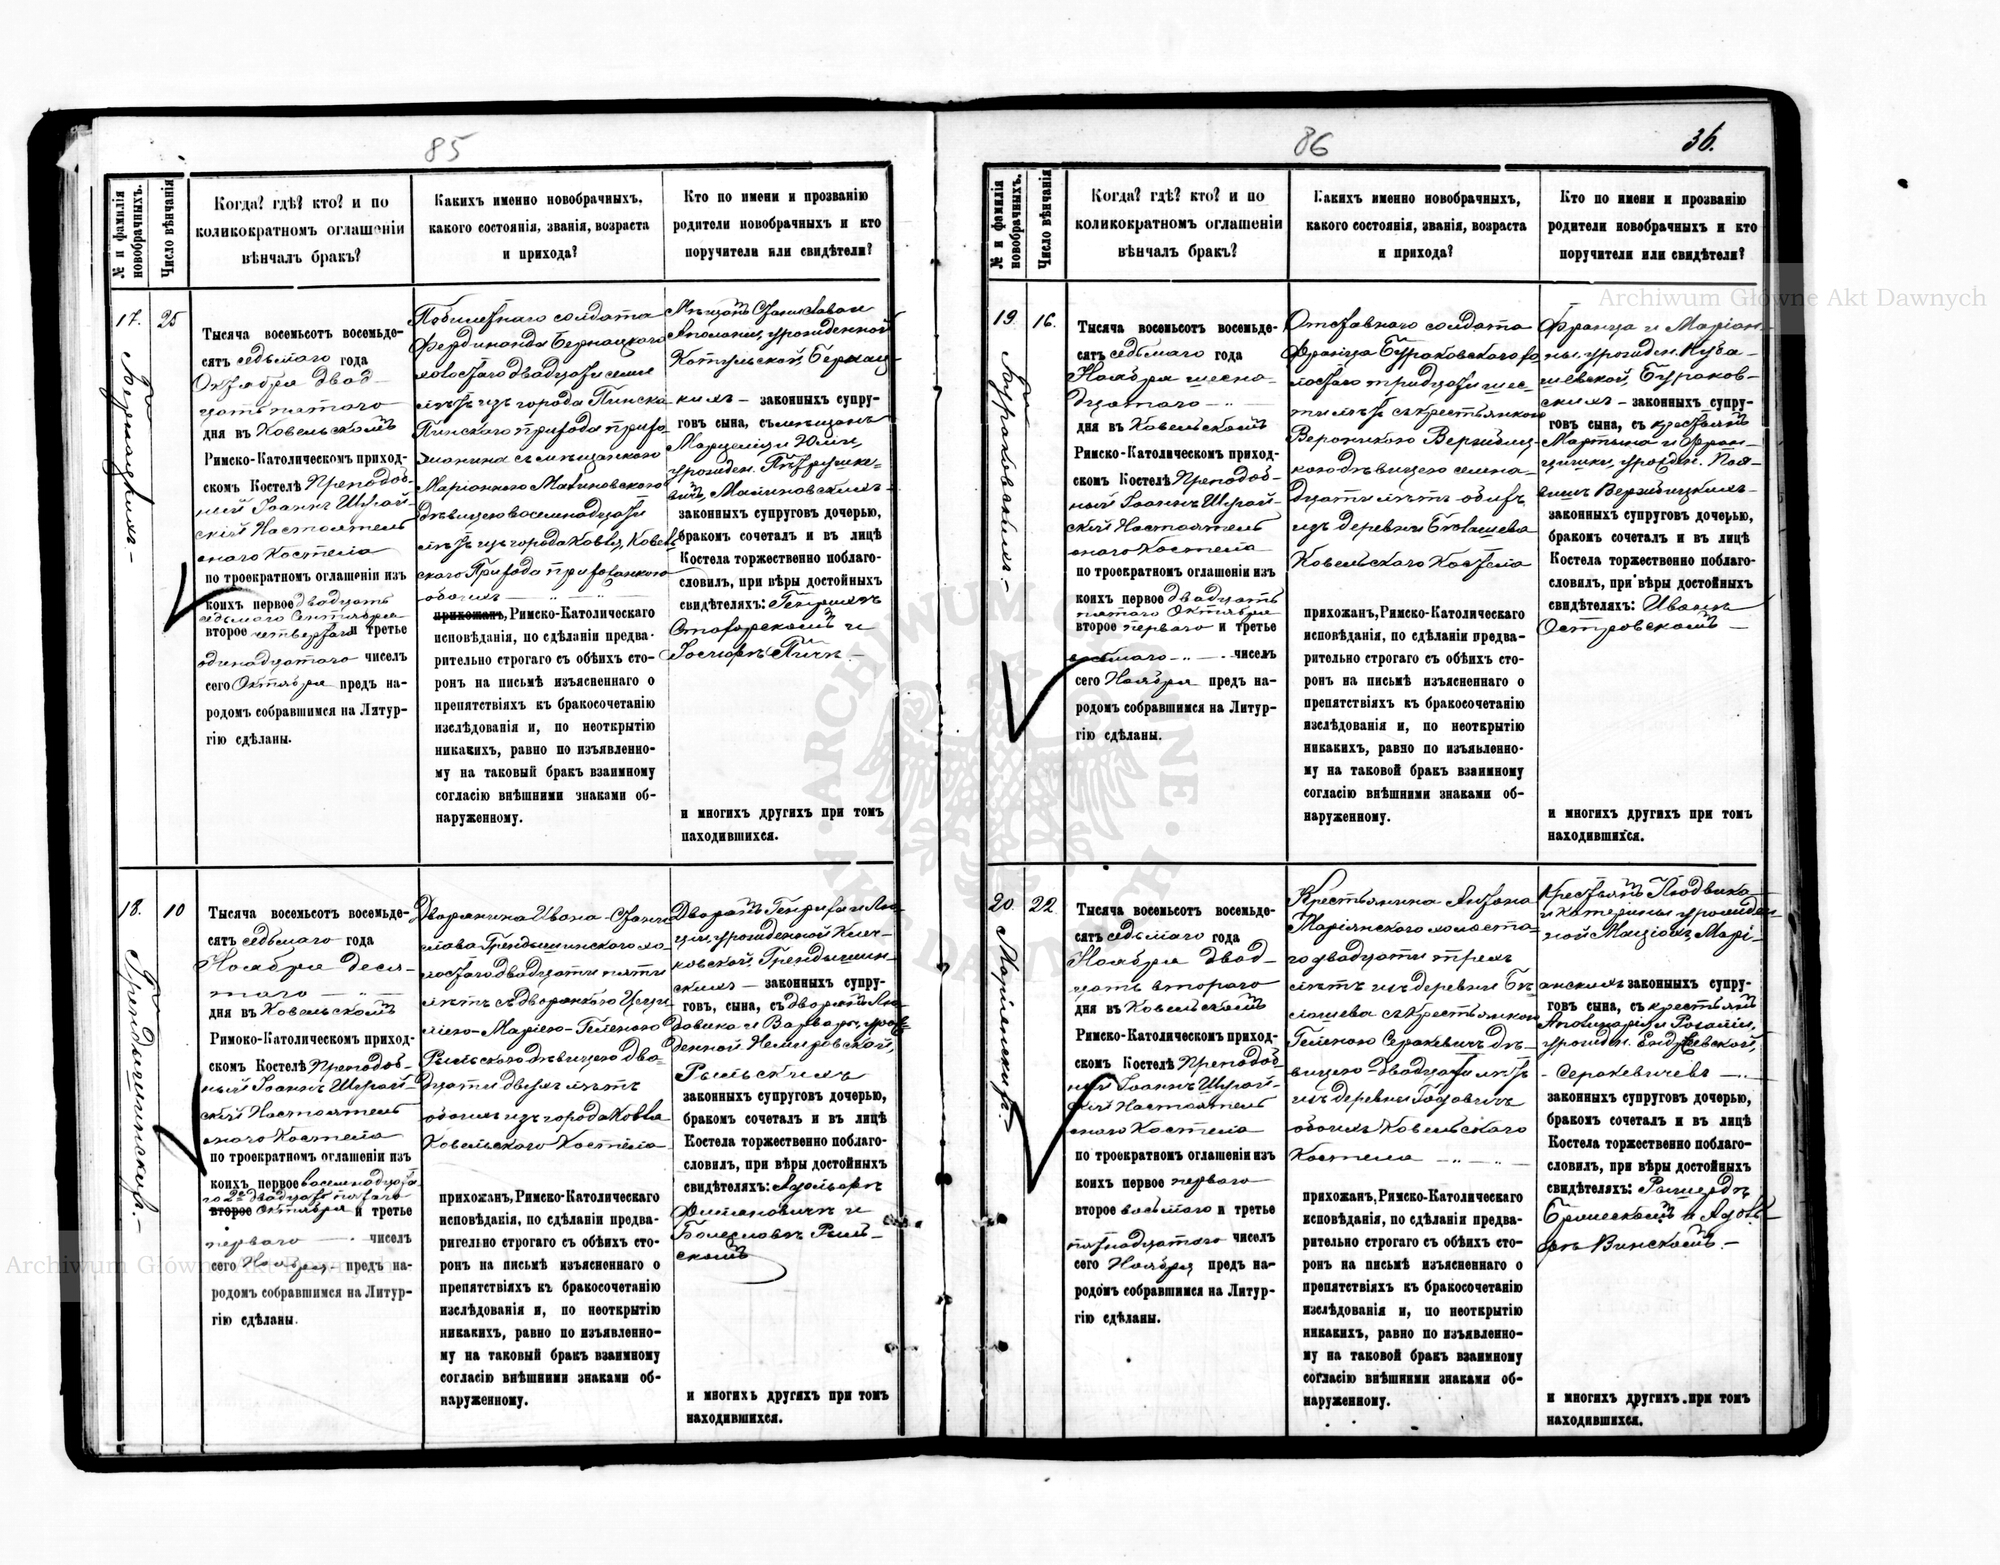 85
№ и фамилія новобрачныхъ.
Число вѣнчанія
Когда? гдѣ? кто? и по
коликократномъ оглашеніи
вѣнчалъ бракъ?
Какихъ именно новобрачныхъ,
какого состоянія, званія, возраста
и прихода?
Кто по имени и прозванію
родители новобрачныхъ и кто
поручители или свидѣтели?
17.
Бернацкихъ.
25
Тысяча восемьсотъ восемьде-
сятъ седьмаго года
Октября двад-
цать пятаго
дня въ Ковельскомъ
Римско-Католическомъ приход-
скомъ Костелѣ Преподоб-
ный Іоаннъ Шурай-
скій Настоятель
оного Костела
по троекратномъ оглашеніи изъ
коихъ первое двадцать
седьмаго Сентября
второе четвертаго и третье
одинадцатаго чиселъ
сего Октября предъ на-
родомъ собравшимся на Литур-
гію сдѣланы.
солдата
Фердинанда Бернацкого
холостаго двадцати семи
лѣтъ изъ города Пинска
Пинского прихода прихо-
жанина съ мѣщанкою
Маріанною Малиновского
дѣвицею восемнадцати
лѣтъ изъ города Ковля, Ковель-
ского Прихода прихожанкою
обоихъ
прихожанъ, Римско-Католическаго
исповѣданія, по сдѣланіи предва-
рительно строгаго съ обѣихъ сто-
ронъ на письмѣ изъясненнаго о
препятствіяхъ къ бракосочетанію
изслѣдованія и, по неоткрытію
никакихъ, равно по изъявленно-
му на таковый бракъ взаимному
согласію внѣшними знаками об-
наруженному.
Мѣщанъ Станислава и
урожденной
Котульской, Бернац-
кихъ — законныхъ супру-
говъ сына, съ мѣщанъ
и Юліи
урожден. Петрушке-
вичъ, Малиновскихъ
законныхъ супруговъ дочерью,
бракомъ сочеталъ и въ лицѣ
Костела торжественно поблаго-
словилъ, при вѣры достойныхъ
свидѣтеляхъ: Генрихѣ
и
и многихъ другихъ при томъ
находившихся.
18.
Грендышинскихъ.
10
Тысяча восемьсотъ восемьде-
сятъ седьмаго года
Ноября деся-
таго
дня въ Ковельскомъ
Римско-Католическомъ приход-
скомъ Костелѣ Преподоб-
ный Іоаннъ Шурай-
скій Настоятель
оного Костела
по троекратномъ оглашеніи изъ
коихъ первое восемнадцата-
го 2е двадцать пятаго
второе Октября и третье
перваго чиселъ
сего Ноября предъ на-
родомъ собравшимся на Литур-
гію сдѣланы.
Дворянина Ивана-Стани-
слава Грендышинского хо-
лостаго двадцати пяти
лѣтъ съ дворянкою Цеци-
ліею-Маріею-Геленою
Рыльского дѣвицею два-
дцати двухъ лѣтъ
обоихъ изъ города Ковля
Ковельского Костела
прихожанъ, Римско-Католическаго
исповѣданія, по сдѣланіи предва-
рительно строгаго съ обѣихъ сто-
ронъ на письмѣ изъясненнаго о
препятствіяхъ къ бракосочетанію
изслѣдованія и, по неоткрытію
никакихъ, равно по изъявленно-
му на таковый бракъ взаимному
согласію внѣшними знаками об-
наруженному.
Дворянъ Генриха и Лю-
ціи, урожденной
Грендышин-
скихъ — законныхъ супру-
говъ, сына, съ дворянъ Лю-
довика и Варвары, урож-
денной Немировской,
Рыльскихъ
законныхъ супруговъ дочерью,
бракомъ сочеталъ и въ лицѣ
Костела торжественно поблаго-
словилъ, при вѣры достойныхъ
свидѣтеляхъ:
и
Болеславѣ Рыль-
скомъ
и многихъ другихъ при томъ
находившихся.
86
36.
№ и фамилія новобрачныхъ.
Число вѣнчанія
Когда? гдѣ? кто? и по
коликократномъ оглашеніи
вѣнчалъ бракъ?
Какихъ именно новобрачныхъ,
какого состоянія, званія, возраста
и прихода?
Кто по имени и прозванію
родители новобрачныхъ и кто
поручители или свидѣтели?
19.
Бураковскихъ.
16.
Тысяча восемьсотъ восемьде-
сятъ седьмаго года
Ноября шесна-
дцатаго
дня въ Ковельскомъ
Римско-Католическомъ приход-
скомъ Костелѣ Преподоб-
ный Іоаннъ Шурай-
скій Настоятель
оного Костела
по троекратномъ оглашеніи изъ
коихъ первое двадцать
пятаго Октября
второе перваго и третье
восьмаго чиселъ
сего Ноября предъ на-
родомъ собравшимся на Литур-
гію сдѣланы.
Отставнаго солдата
Франца Бураковского хо-
лостаго тридцати шес-
ти лѣтъ съ крестьянкою
Вероникою Вержбиц-
кою дѣвицею семна-
дцати лѣтъ обоихъ
изъ деревни Белашева
Ковельского Костела
прихожанъ, Римско-Католическаго
исповѣданія, по сдѣланіи предва-
рительно строгаго съ обѣихъ сто-
ронъ на письмѣ изъясненнаго о
препятствіяхъ къ бракосочетанію
изслѣдованія и, по неоткрытію
никакихъ, равно по изъявленно-
му на таковой бракъ взаимному
согласію внѣшними знаками об-
наруженному.
Франца и Маріан-
ны, урожден. Куба-
шевской, Бураков-
скихъ — законныхъ супру-
говъ сына, съ крестьянъ
Мартына и Фран-
цишки, урожден.
Вержбицкихъ
законныхъ супруговъ дочерью,
бракомъ сочеталъ и въ лицѣ
Костела торжественно поблаго-
словилъ, при вѣры достойныхъ
свидѣтеляхъ: Иванѣ
Островскомъ
и многихъ другихъ при томъ
находившихся.
20.
Маріянскихъ.
22
Тысяча восемьсотъ восемьде-
сятъ седьмаго года
Ноября двад-
цать втораго
дня въ Ковельскомъ
Римско-Католическомъ приход-
скомъ Костелѣ Преподоб-
ный Іоаннъ Шурай-
скій Настоятель
оного Костела
по троекратномъ оглашеніи изъ
коихъ первое перваго
второе восьмаго и третье
пятнадцатаго чиселъ
сего Ноября предъ на-
родомъ собравшимся на Литур-
гію сдѣланы.
Крестьянина Антона
Маріянского холоста-
го двадцати трехъ
лѣтъ изъ деревни Бе-
лашева съ крестьянкою
Геленою Серакевичъ дѣ-
вицею двадцати лѣтъ
изъ деревни
обоихъ Ковельского
Костела
прихожанъ, Римско-Католическаго
исповѣданія, по сдѣланіи предва-
рительно строгаго съ обѣихъ сто-
ронъ на письмѣ изъясненнаго о
препятствіяхъ къ бракосочетанію
изслѣдованія и, по неоткрытію
никакихъ, равно по изъявленно-
му на таковой бракъ взаимному
согласію внѣшними знаками об-
наруженному.
Крестьянъ Людвика
и Катерины урожден-
ной Марі-
анскихъ законныхъ супру-
говъ сына, съ крестьянъ
Аполинарія и Розаліи,
урожден. Ендржеевской,
Серакевичевъ
законныхъ супруговъ дочерью,
бракомъ сочеталъ и въ лицѣ
Костела торжественно поблаго-
словилъ, при вѣры достойныхъ
свидѣтеляхъ: Рышардѣ
и Адоль-
фѣ Винскомъ.
и многихъ другихъ при томъ
находившихся.
Archiwum Główne Akt Dawnych
Archiwum Główne Akt Dawnych
ARCHIWUM GŁÓWNE AKT DAWNYCH